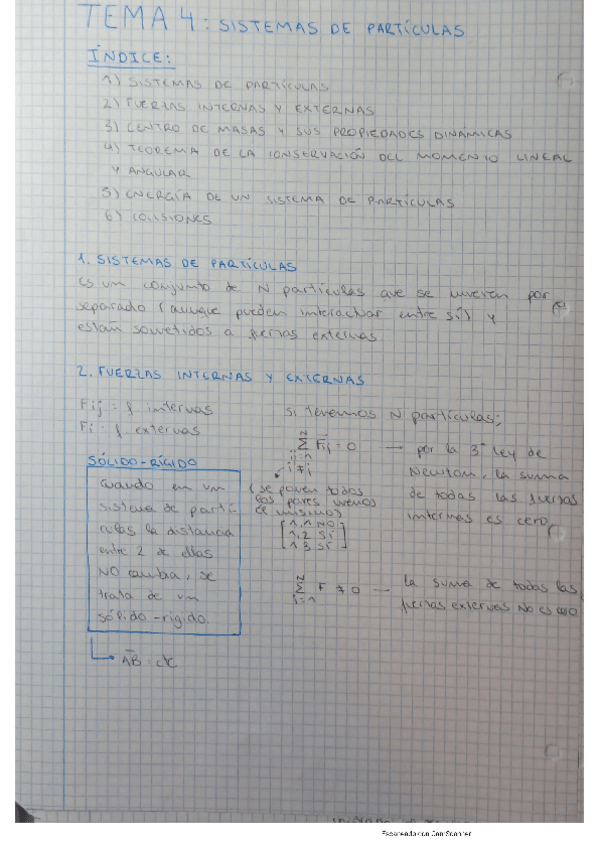 TEMA 4: SISTEMAS DE PARTÍCULAS
ÍNDICE:
1) SISTEMAS DE PARTÍCULAS
2) FUERZAS INTERNAS Y EXTERNAS
3) CENTRO DE MASAS Y SUS PROPIEDADES DINÁMICAS
4) TEOREMA DE LA CONSERVACIÓN DEL MOMENTO LINEAL
Y ANGULAR
5) ENERGÍA DE UN SISTEMA DE PARTÍCULAS
6) COLISIONES
1. SISTEMAS DE PARTÍCULAS
Es un conjunto de N partículas que se mueven por
separado (aunque pueden interactuar entre sí) y
están sometidos a fuerzas externas
2. FUERZAS INTERNAS Y EXTERNAS
Fij = f internas
Fi = f externas
si tenemos N partículas;
N
Σ Fij = 0 — por la 3ª Ley de
ij=1
i≠j
Newton, la suma
de todas las fuerzas
internas es cero
(se ponen todos
los pares menos
el mismo)
1,1 NO
1,2 SÍ
1 3 SÍ
SÓLIDO-RÍGIDO
Cuando en un
sistema de partí-
culas la distancia
entre 2 de ellas
NO cambia, se
trata de un
sólido-rígido.
AB = ctc
N
Σ F ≠ 0 — la suma de todas las
i=1
fuerzas externas NO es cero
Escaneado con CamScanner